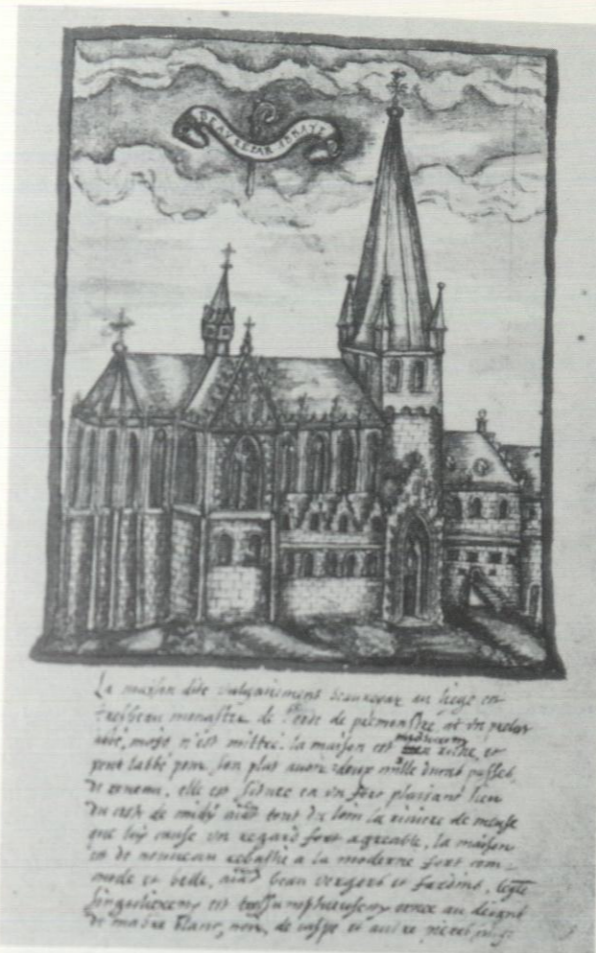 BEAVREPAR ABAYE
La maison dite vulgairement beaurepar au liege est
tresbeau monastre de l'orde de premonstre, at un prelat
abbé, mais n'est mittré. la maison est mediocrement riche, et
peut l'abbé pour son plat avoir deux mille ducats passés
de revenu. elle est située en un fort plaisant lieu
du costé de midy tout du loin la riviere de meuse
que luy cause un regard fort agreable, la maison
est de nouveau rebastie a la moderne fort com-
mode et belle, beau vergers et jardins,
singulierement est tressumptueusement ornee au devant
de mabre blanc, noir, de iaspe et autre pierres